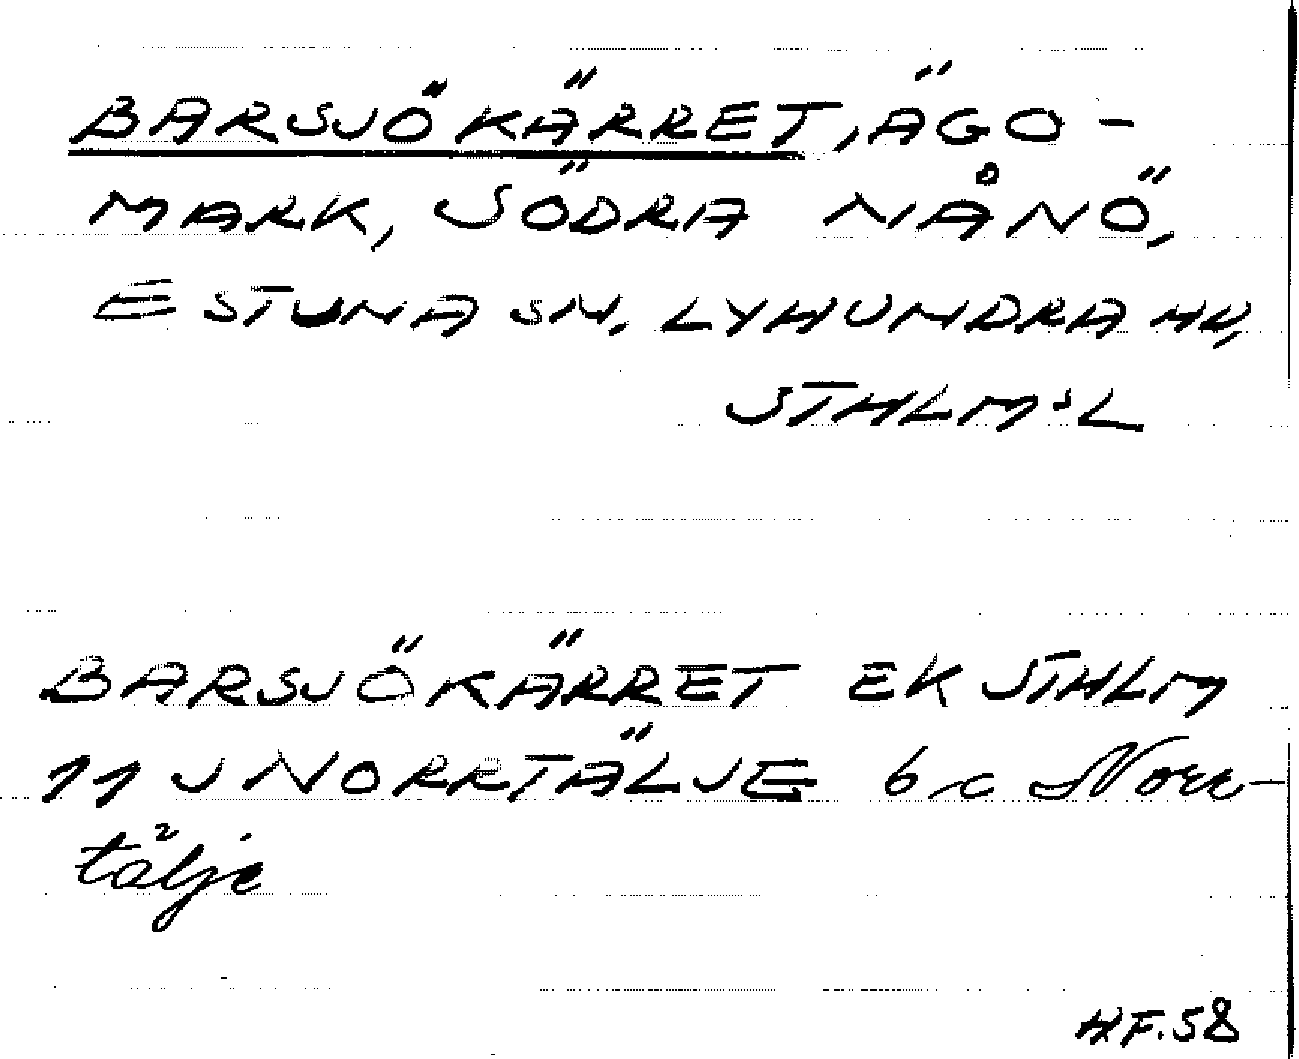 BARSJÖKÄRRET, ÄGO-
MARK, SÖDRA NÅNÖ,
ESTUNA SN, LYHUNDRA HD,
STHLM:L
BARSJÖKÄRRET EK STHLM
11 J NORRTÄLJE 6 c Norr-
tälje
HF.58